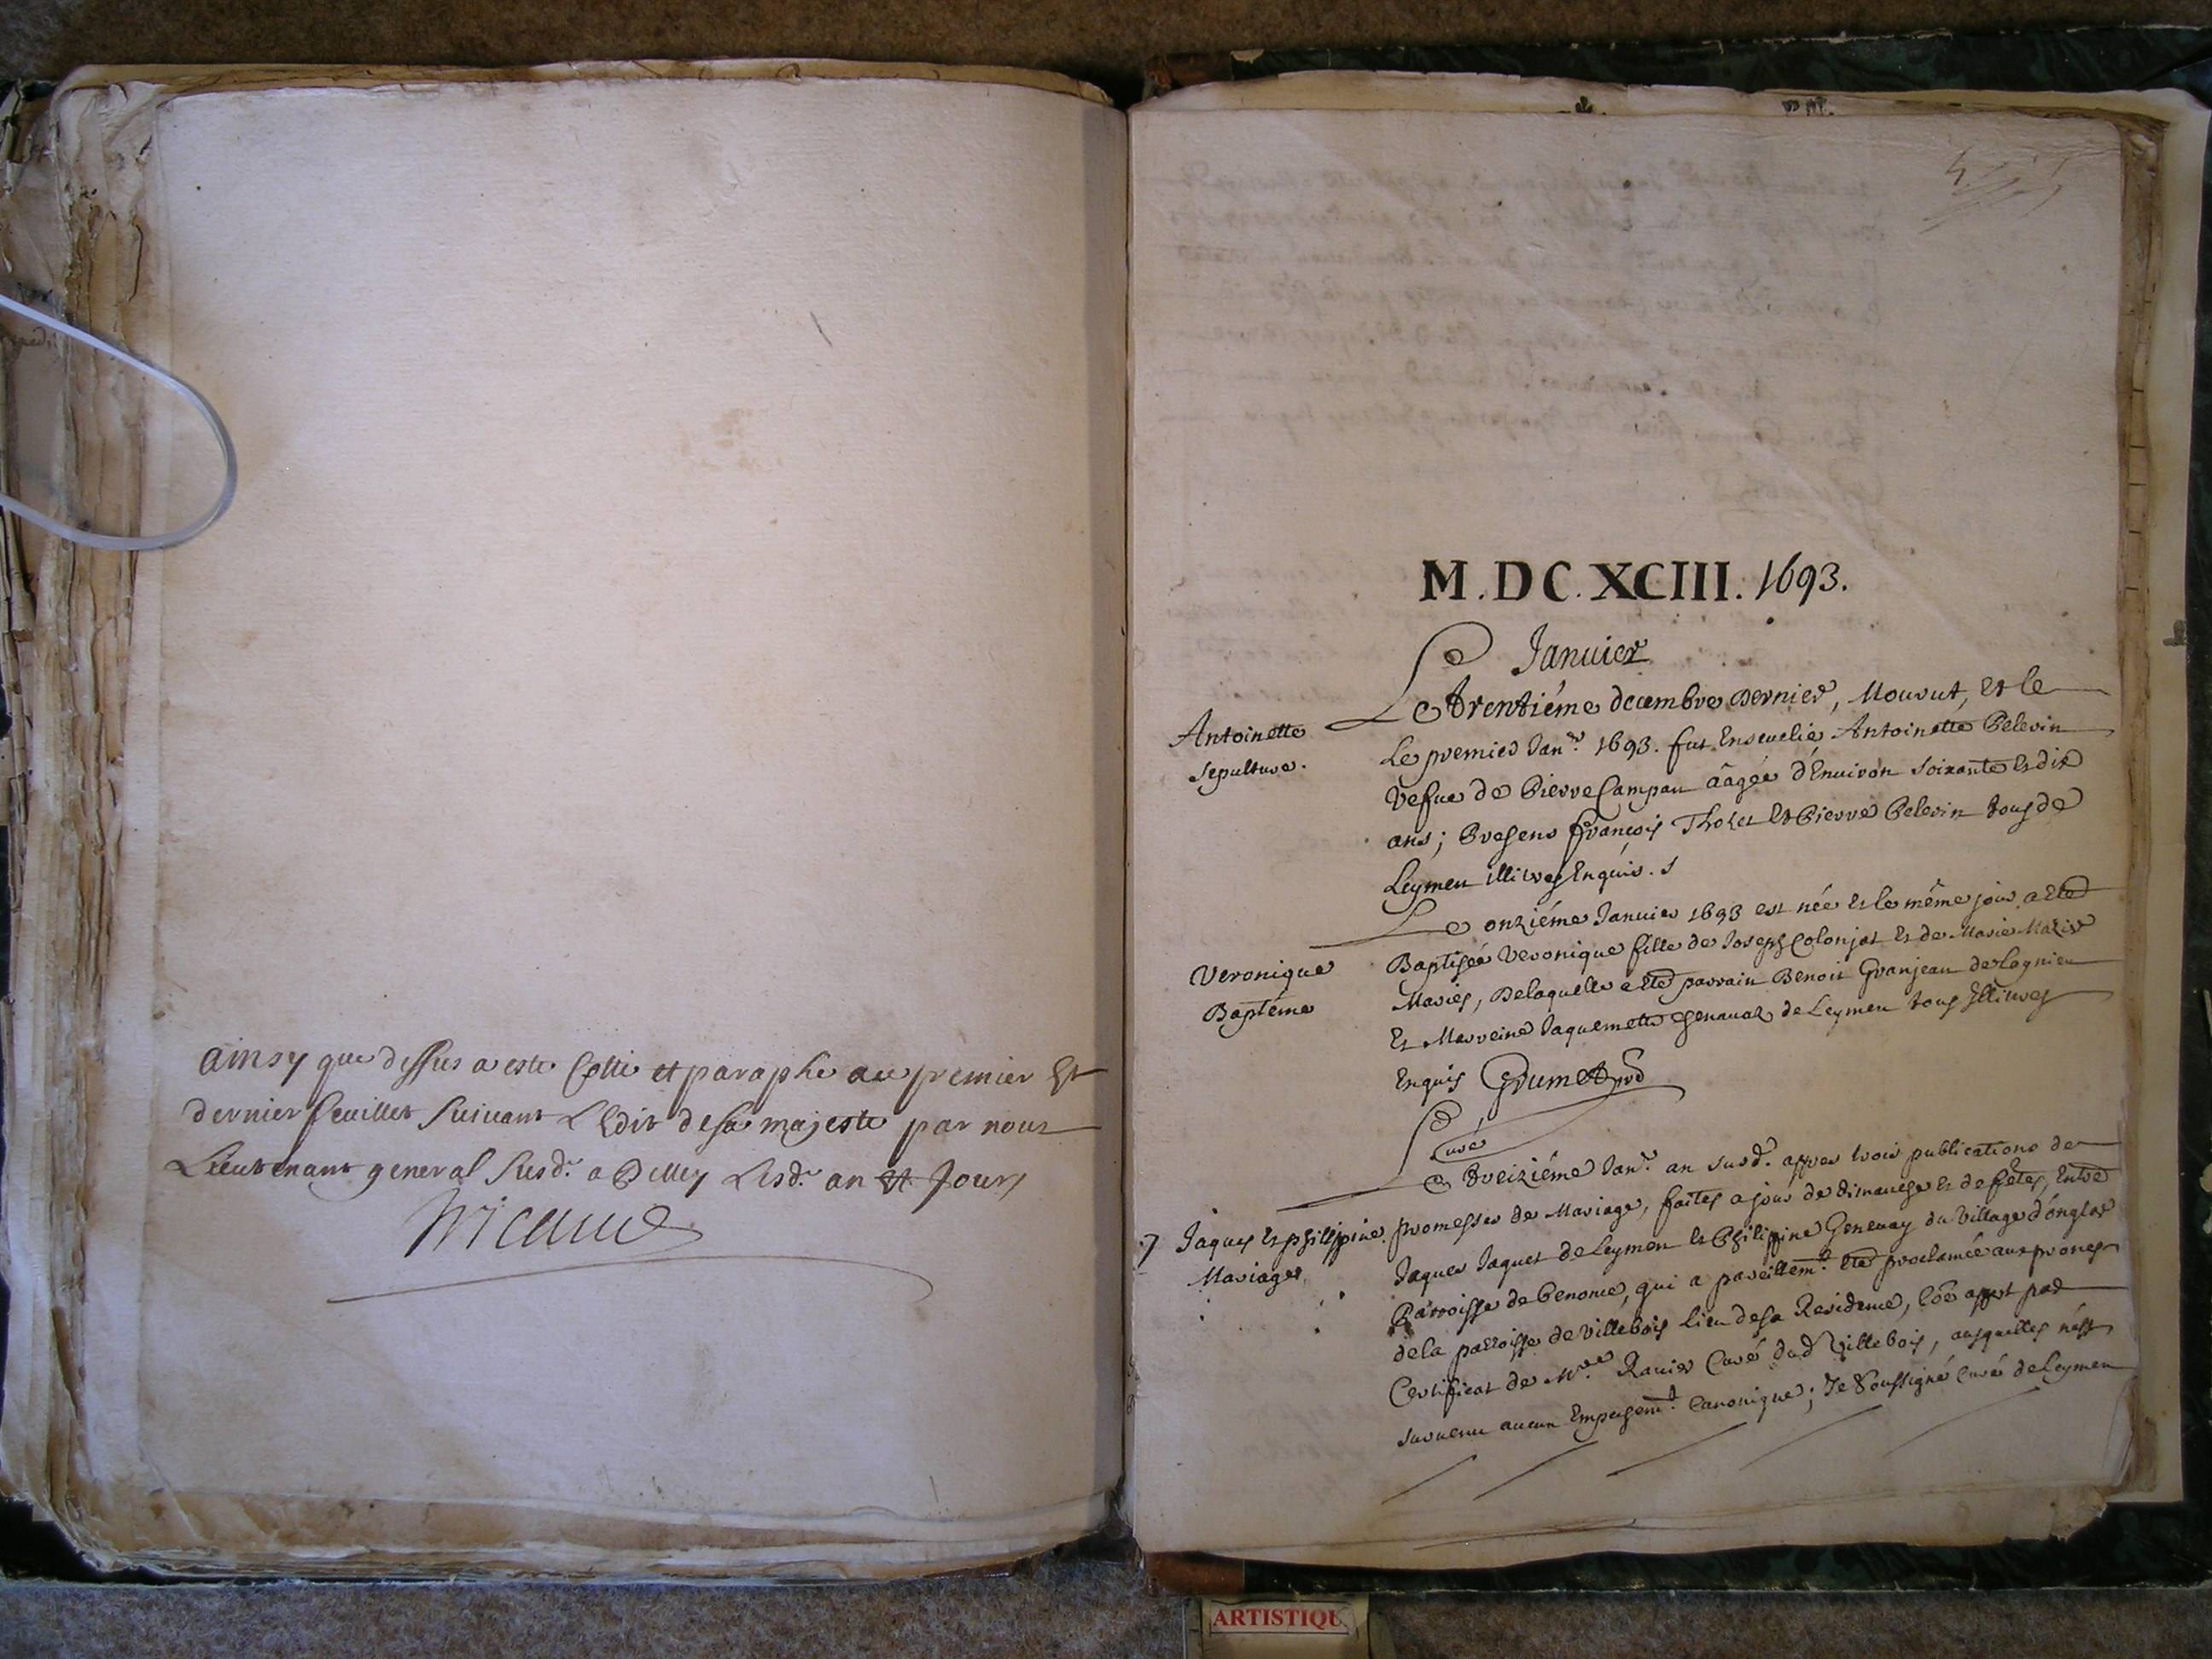 ainsy que dessus a este Cotté et paraphé au premier Et
dernier feuillet suivant L'Edit de sa majesté par nous
Lieutenant general susd. a Belley Lesd. an et Jour
M.DC.XCIII. 1693.
Januier
Antoinette
sepulture.
Le trentiéme decembre dernier, Mourut, et le
Le premier Janr. 1693. fut Enseuelie Antoinette Pelevin
Vefue de Pierre Campan aagée d'Enuiron soixante Et dix
ans; Presens François Tholet Et Pierre Pelevin tous de
Leymen illitres Enquis.
Veronique
Baptéme
Le onziéme Januier 1693 est née et le même jour a Eté
Baptisée Veronique fille de Joseph Colonjat Et de Marie
Mariés, De laquelle a Eté parrain Benoit Granjean de Lagnieu
Et Marreine Jaquemette Genauaz de Leymen tous Illitres
Enquis Grumet prd
Curé
7 Jaques Et Philippine
Mariage
Le treiziéme Janr. an susd. apres trois publications de
promesses de Mariage, faites a jour de dimanche Et de fêtes, Entre
Jaques Jaquet de Leymen Et Philippine Geneuay du Village d'onglas
Parroisse de Benonce, qui a pareillemt. Eté proclamée aux prones
de la parroisse de Villebois lieu de sa Residence, Côe appert par
Certificat de Mre. Rauier Curé dud Villebois, ausquelles n'est
suruenu aucun Empeschemt. Canonique; Je soussigné Curé de Leymen
ARTISTIQU